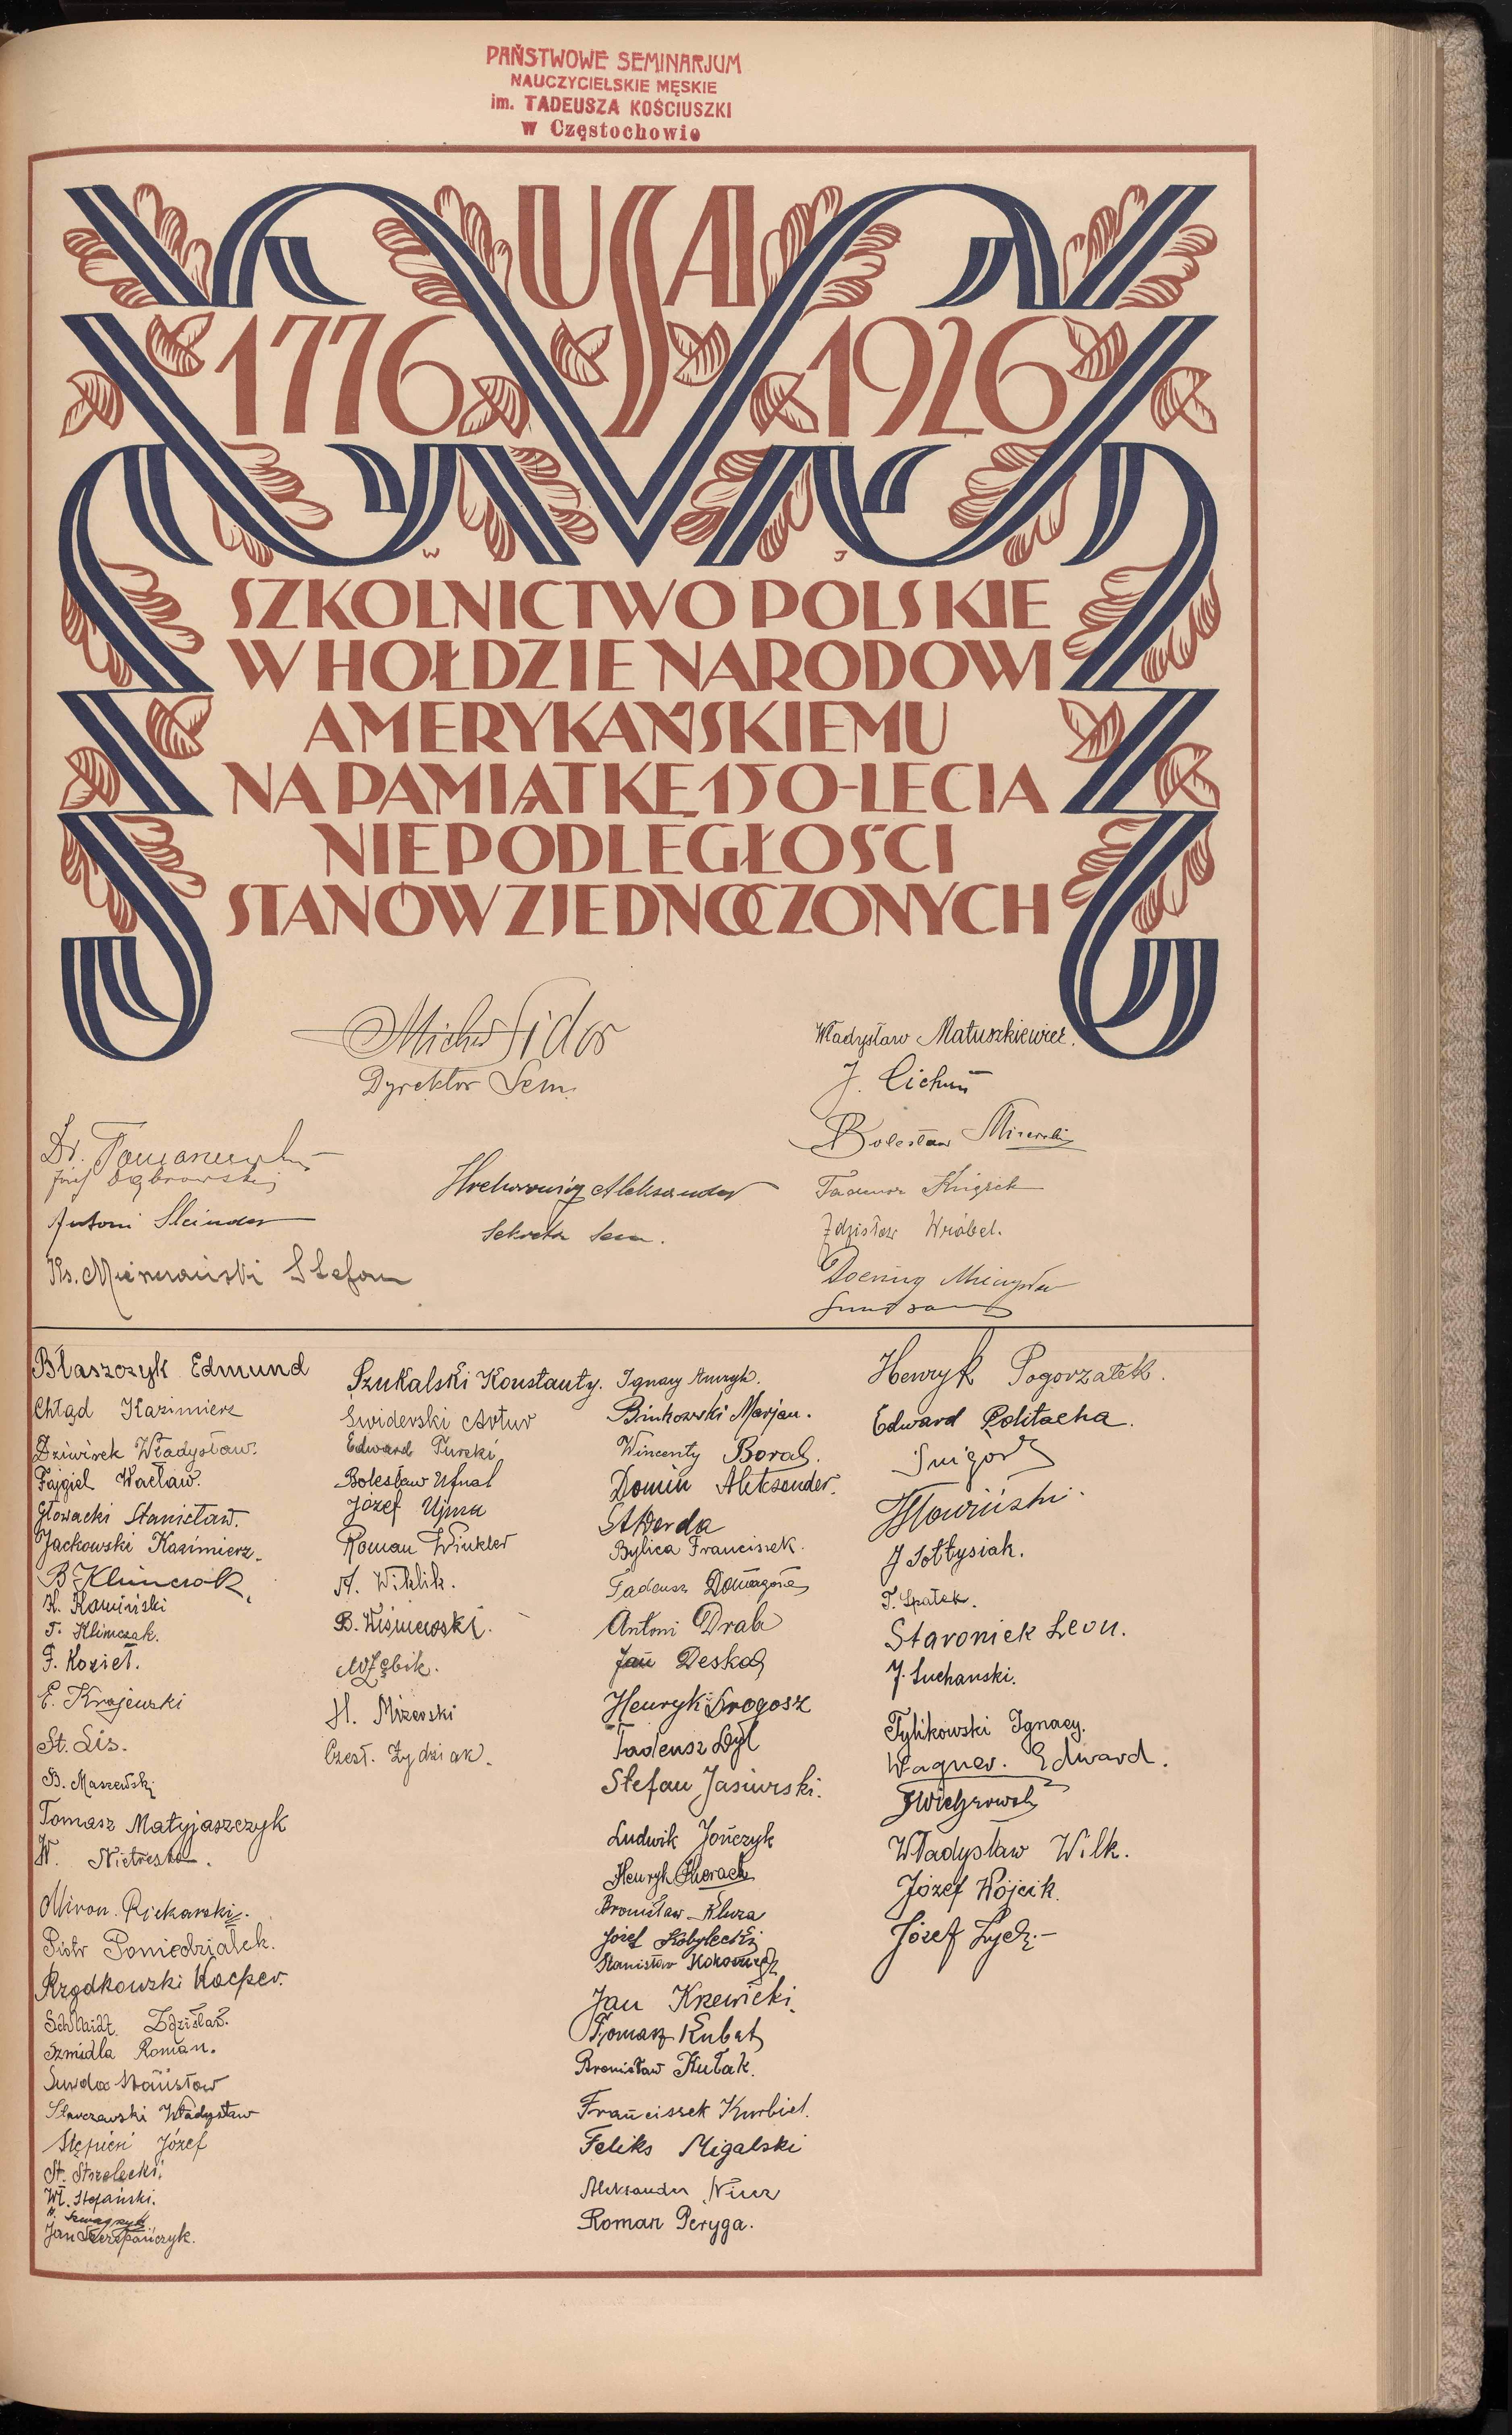 PAŃSTWOWE SEMINARJUM
NAUCZYCIELSKIE MĘSKIE
im. TADEUSZA KOŚCIUSZKI
w Częstochowie
USA
1776 1926
W J
SZKOLNICTWO POLSKIE
W HOŁDZIE NARODOWI
AMERYKAŃSKIEMU
NA PAMIĄTKĘ 150-LECIA
NIEPODLEGŁOŚCI
STANÓW ZJEDNOCZONYCH
Sidor
Dyrektor Sem.
Dr.
Józef Dąbrowski
Antoni
Ks. Stefan
Aleksander
Sem.
Władysław Matuszkiewicz.
J.
Bolesław
Tadeusz
Zdzisław Wróbel.
Doening Mieczysław
Błaszczyk Edmund
Chłąd Kazimierz
Dziwisek Władysław.
Fajgiel Wacław.
Głowacki Stanisław.
Jackowski Kazimierz.
B. Klimczok
K. Kamiński
T. Klimczak.
F. Kozieł.
E. Krajewski
St. Lis.
B. Maszewski
Tomasz Matyjaszczyk
W.
Miron Piekarski.
Piotr Poniedziałek.
Rządkowski Kacper.
Schmidt Zdzisław.
Szmidla Roman.
Surda Stanisław
Starczewski Władysław
Stępień Józef
St. Strzelecki.
Wł. Stefański.
Jan Szczepańczyk.
Szukalski Konstanty.
Świderski Artur
Edward Turski
Bolesław Ufnal
Józef Ujma
Roman Winkler
A. Wiklik.
B. Wiśniewski.
H. Mizerski
Czesł. Żydziak.
Ignacy
Binkowski Marjan.
Wincenty Boral.
Domin Aleksander.
St. Werda
Bylica Franciszek.
Tadeusz Domagała
Antoni Drab
Jan Deska
Henryk Drogosz
Tadeusz Dyl
Stefan Jasiurski.
Ludwik Jończyk
Henryk
Bronisław Kluza
Józef Kobyłecki
Stanisław
Jan Krzewicki.
Tomasz Kubat
Bronisław Kułak.
Franciszek Kurbiel.
Feliks Migalski
Aleksander
Roman Peryga.
Henryk Pogorzałek.
Edward Politacha.
J Sołtysiak.
T. Spałek.
Staroniek Leon.
J. Suchanski.
Tylikowski Ignacy.
Wagner. Edward.
Władysław Wilk.
Józef Wójcik.
Józef